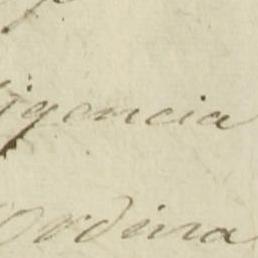 igencia
Ordina